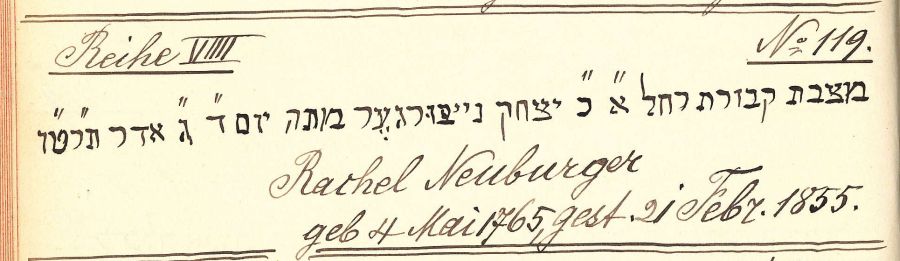 Reihe VIIII
No 119.
מצבת קבורת רחל א"ּ כ" יצחק נייבורגער במתה יום ד" ג" אדר תרט"ו
Rachel Neuburger
geb 4 Mai 1765, gest. 21 Febr. 1855.